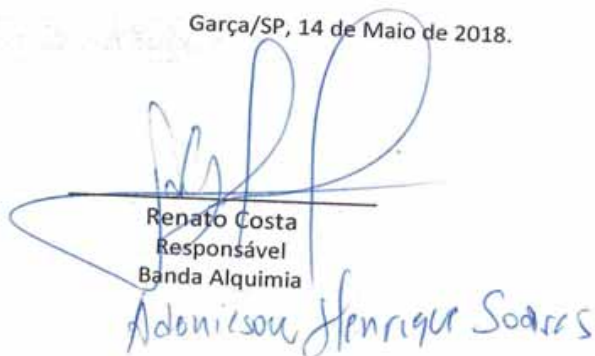 Garça/SP, 14 de Maio de 2018.
Renato Costa
Responsável
Banda Alquimia
Adenicson Henrique Soares